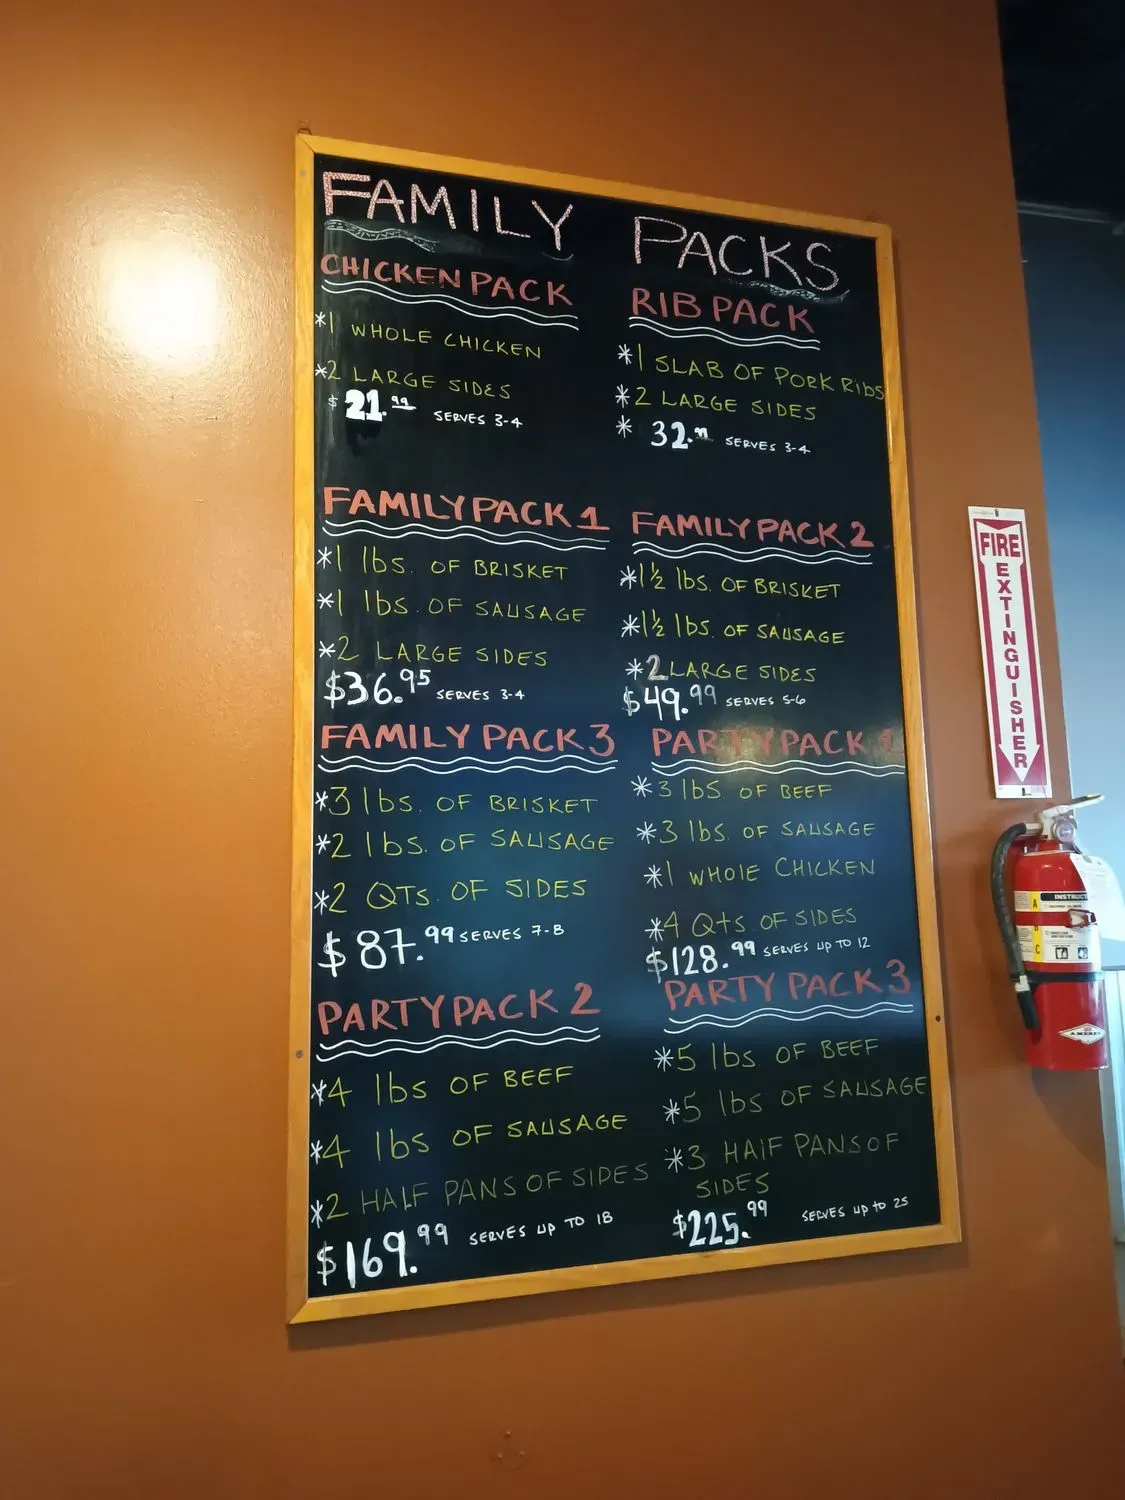 FAMILY PACKS
CHICKEN PACK
*1 WHOLE CHICKEN
*2 LARGE SIDES
$21.99 SERVES 3-4
RIB PACK
*1 SLAB OF PORK RIBS
*2 LARGE SIDES
* 32.99 SERVES 3-4
FAMILY PACK 1
*1 lbs. OF BRISKET
*1 lbs. OF SAUSAGE
*2 LARGE SIDES
$36.95 SERVES 3-4
FAMILY PACK 2
*1½ lbs. OF BRISKET
*1½ lbs. OF SAUSAGE
*2 LARGE SIDES
$49.99 SERVES 5-6
FAMILY PACK 3
*3 lbs. OF BRISKET
*2 lbs. OF SAUSAGE
*2 QTs. OF SIDES
$87.99 SERVES 7-8
PARTY PACK 1
*3 lbs. OF BEEF
*3 lbs. OF SAUSAGE
*1 WHOlE CHICKEN
*4 Qts. OF SIDES
$128.99 SERVES UP TO 12
PARTY PACK 2
*4 lbs OF BEEF
*4 lbs OF SAUSAGE
*2 HALF PANS OF SIDES
$169.99 SERVES UP TO 18
PARTY PACK 3
*5 lbs. OF BEEF
*5 lbs OF SAUSAGE
*3 HAlF PANS OF
SIDES
$225.99 SERVES UP to 25
FIRE
EXTINGUISHER
A
C